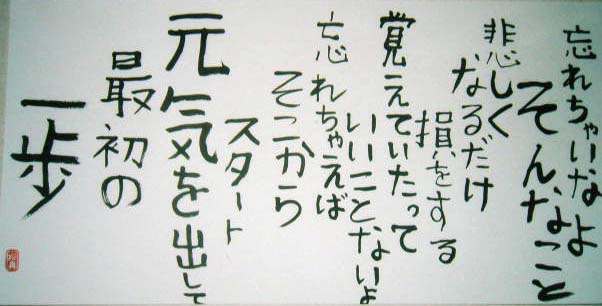 忘れちゃいなよ
そんなこと
悲しく
なるだけ
損をする
覚えていたって
いいことないよ
忘れちゃえば
そこから
スタート
元気を出して
最初の
一歩